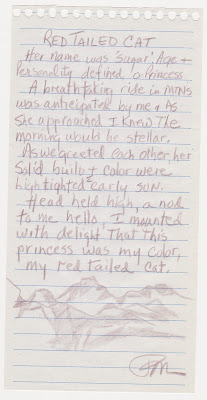 RED TAILED CAT
Her name was 'Sugar'. Age +
Personality defined a Princess
A breathtaking ride in MTNS
was anticipated by me + AS
she approached I knew The
morning would be stellar.
As we greeted each other, her
Solid build + color were
hightighted early sun.
Head held high, a nod
to me hello, I mounted
with delight That this
princess was my color,
my red tailed Cat.